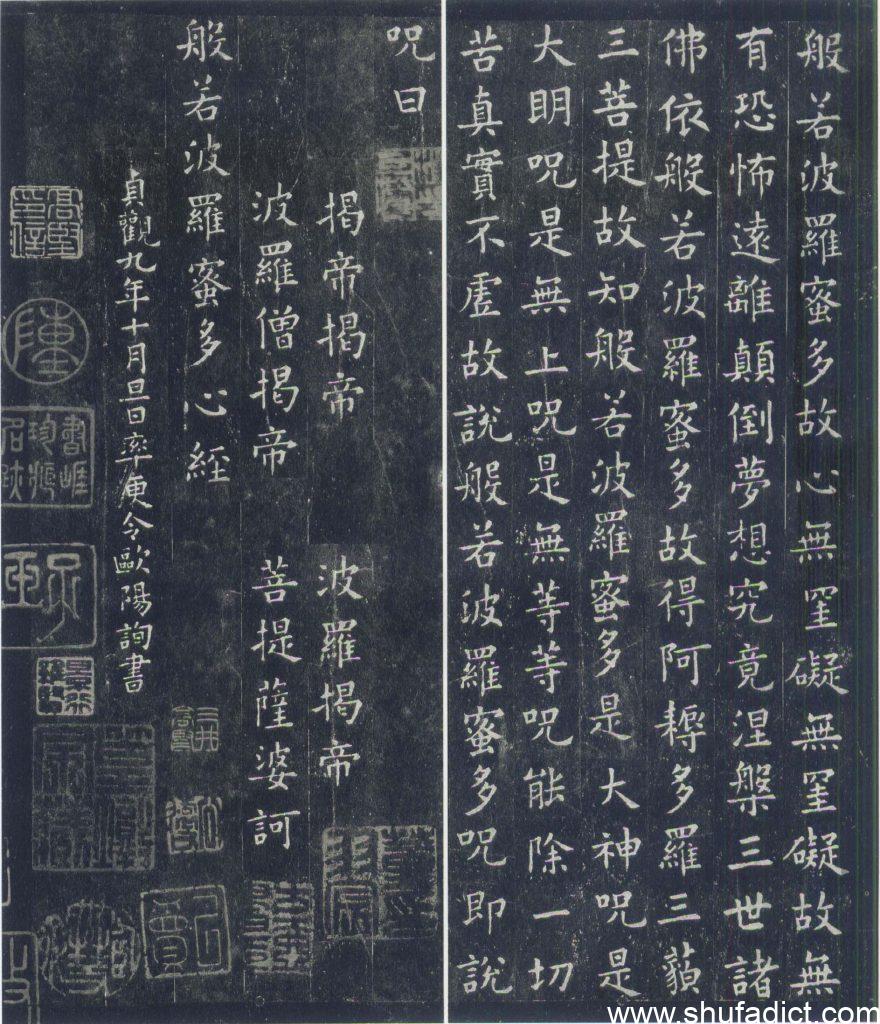 般若波羅蜜多故心無罣礙無罣礙故無
有恐怖遠離顛倒夢想究竟涅槃三世諸
佛依般若波羅蜜多故得阿耨多羅三藐
三菩提故知般若波羅蜜多是大神呪是
大明呪是無上呪是無等等呪能除一切
苦真實不虛故說般若波羅蜜多呪即說
呪曰
揭帝揭帝 波羅揭帝
波羅僧揭帝 菩提薩婆訶
般若波羅蜜多心經
貞觀九年十月旦日率更令歐陽詢書
www.shufadict.com